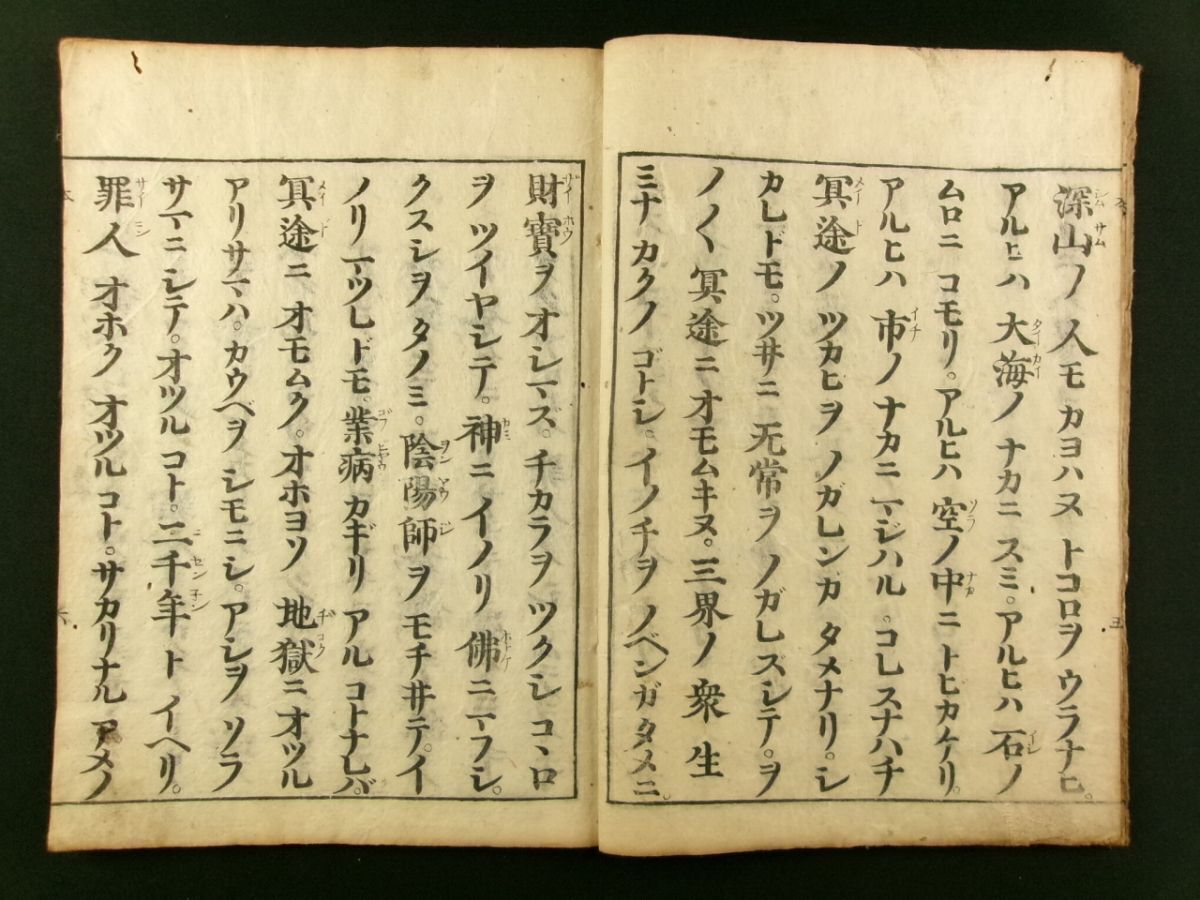 深山ノ人モカヨハヌトコロヲウラナヒ。
アルヒハ大海ノナカニスミ。アルヒハ石ノ
ムロニコモリ。アルヒハ空ノ中ニトヒカケリ。
アルヒハ市ノナカニマジハル。コレスナハチ
冥途ノツカヒヲノガレンカタメナリ。シ
カレドモ。ツ井ニ无常ヲノガレズシテ。ヲ
ノ〱冥途ニオモムキヌ。三界ノ衆生
ミナカクノゴトシ。イノチヲノベンガタメニ。
財寶ヲオシマズ。チカラヲツクシコヽロ
ヲツイヤシテ。神ニイノリ佛ニマフシ。
クスシヲタノミ。陰陽師ヲモチ井テ。イ
ノリマツレドモ。業病カギリアルコトナレバ。
冥途ニオモムク。オホヨソ地獄ニオツル
アリサマハ。カウベヲシモニシ。アシヲソラ
サマニシテ。オツルコト。二千年トイヘリ。
罪人オホクオツルコト。サカリナルアメノ